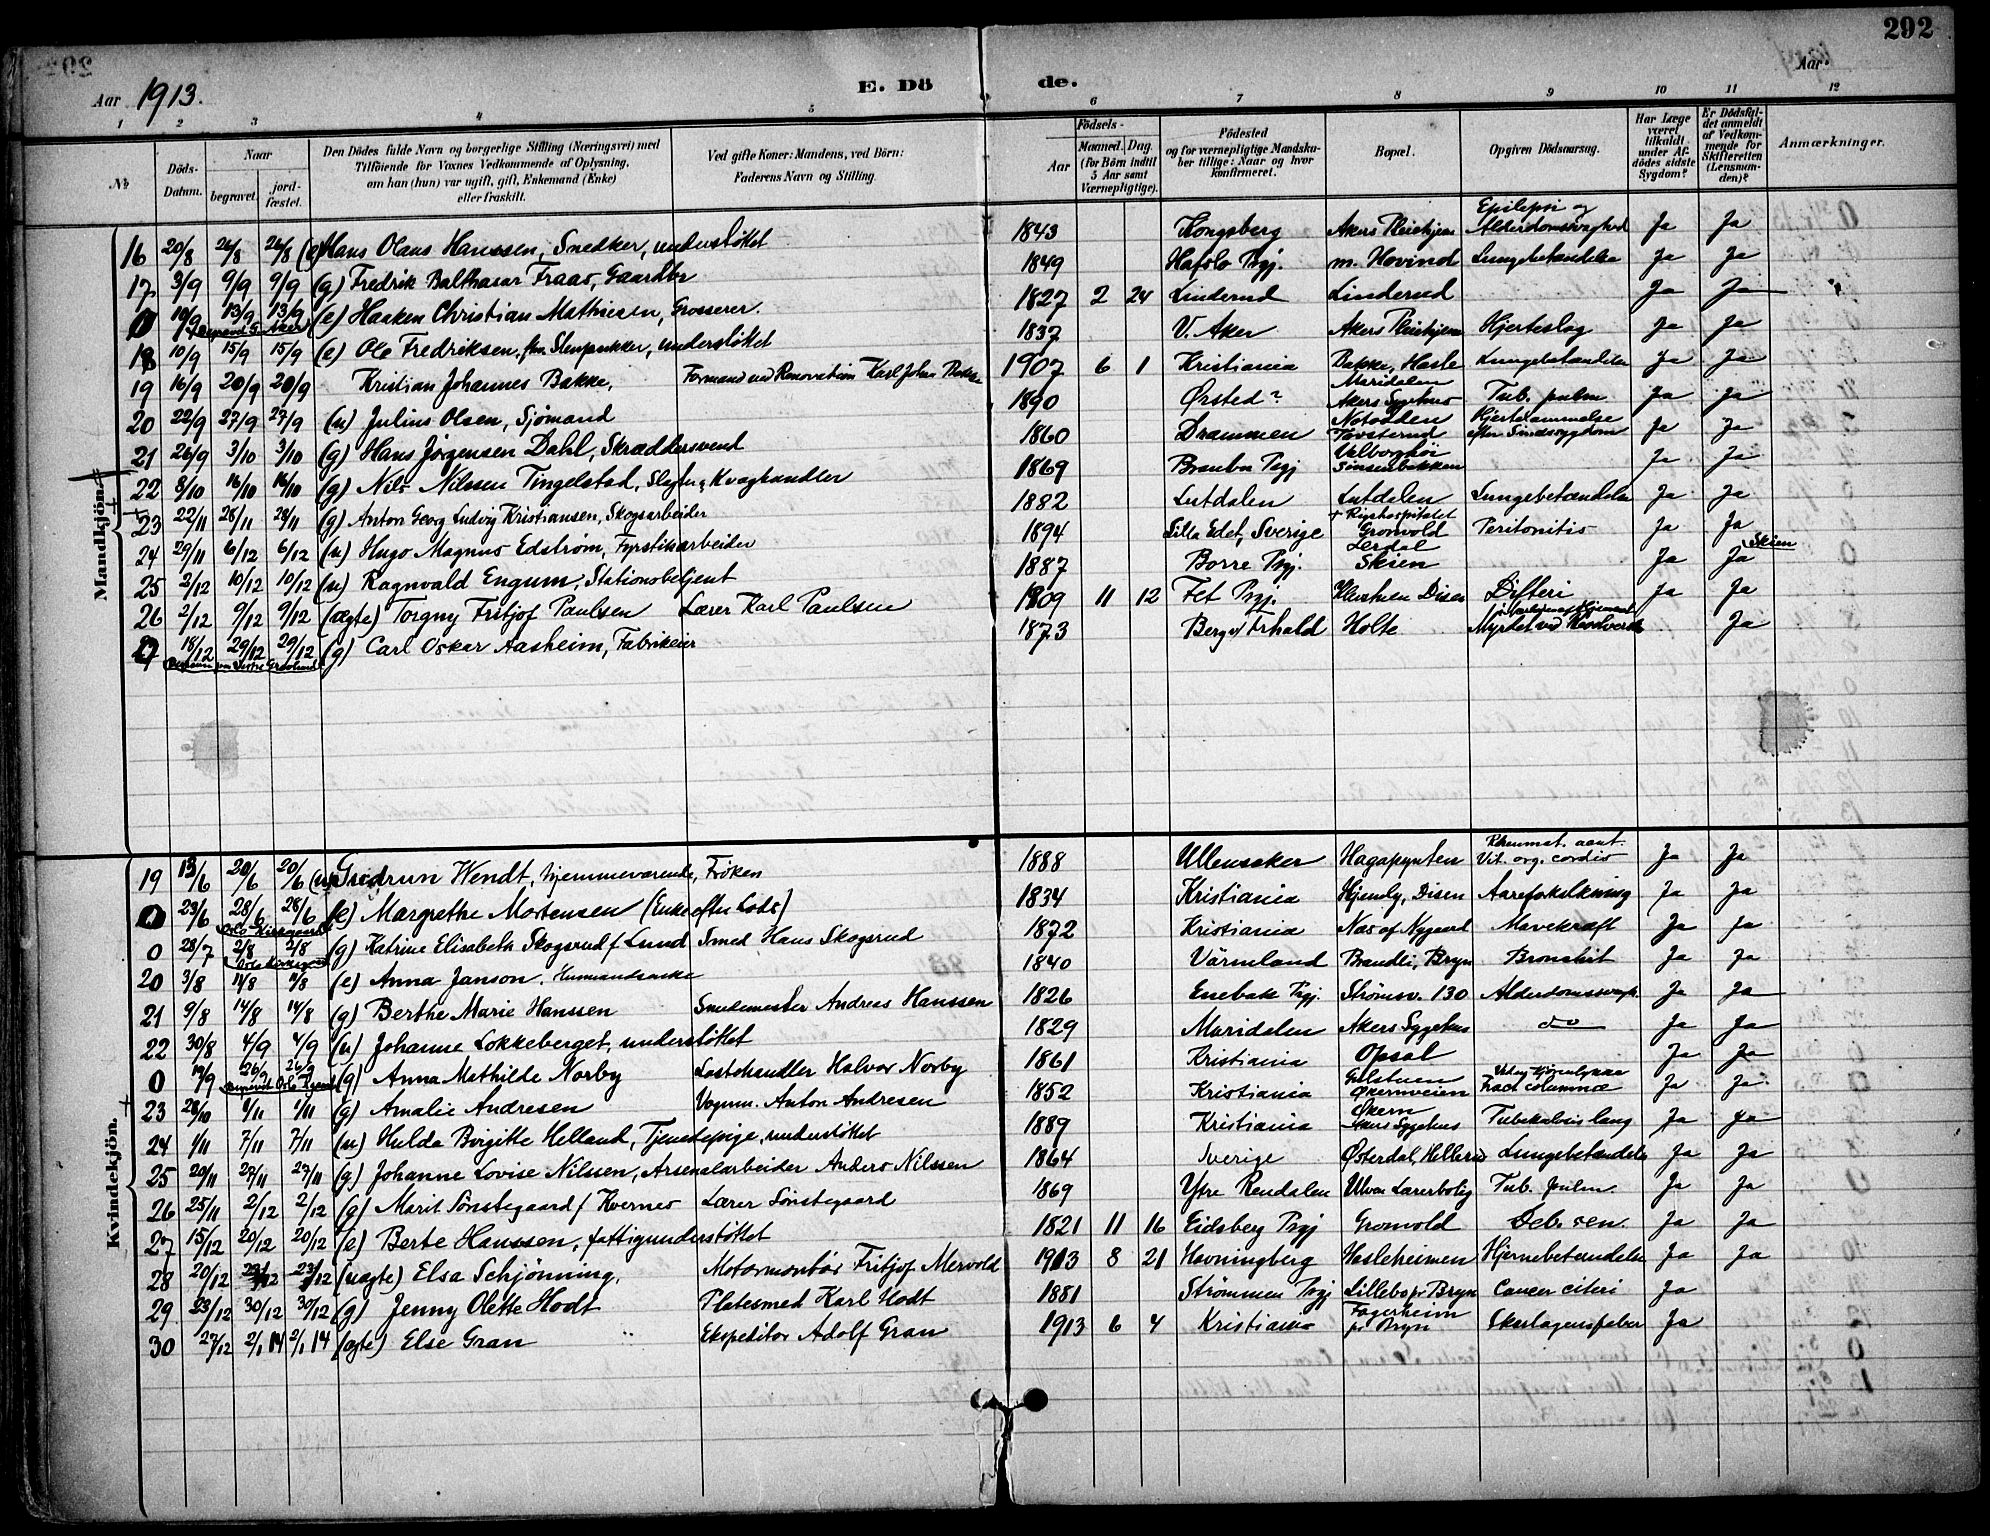 292
Aar 1913.
E. Dö de.
Aar
1 2 3 4 5 6 7 8 9 10 11 12
№
Döds-Datum.
Naar
begravet.
jord-fæstet.
Den Dödes fulde Navn og borgerlige Stilling (Næringsvei) med Tilföiende for Voxnes Vedkommende af Oplysning, om han (hun) var ugift, gift, Enkemand (Enke) eller fraskilt.
Ved gifte Koner: Mandens, ved Börn: Faderens Navn og Stilling.
Födsels-
Aar
Maaned. Dag.
(for Börn indtil 5 Aar samt Værnepligtige).
Födested og for værnepligtige Mandskaber tillige: Naar og hvor konfirmeret.
Bopæl.
Opgiven Dödsaarsag.
Har Læge været tilkaldt under Afdödes sidste Sygdom?
Er Dödsfaldet anmeldt af Vedkommende for Skifteretten (Lensmanden)?
Anmærkninger.
Mandkjön.
16 20/8 26/8 26/8 (e) Hans Olaus Hanssen, Snedker, understøttet 1843 Kongsberg Akers Pleiehjem Epilepsi og Alderdomssvaghed Ja Ja
17 3/9 9/9 9/9 (g) Fredrik Balthasar Fraas, Gaardbr 1849 Hafslo Prgj. m. Hovind Lungebetændelse Ja Ja
0 10/9 13/9 13/9 (e) Haaken Christian Mathiesen, Grosserer. 1827 2 24 Linderud Linderud Ja Ja
18 10/9 15/9 15/9 (e) Ole Fredriksen, fhv. Stenpukker, understøttet 1837 V. Aker Akers Pleiehjem Hjerteslag Ja Ja
19 16/9 20/9 20/9 Kristian Johannes Bakke, Formand ved Renovation Karl Johan Bakke 1907 6 1 Kristiania Bakke, Hasle Lungebetændelse Ja Ja
20 22/9 27/9 27/9 (u) Julius Olsen, Sjømand 1890 Ørsted? Maridalen Akers Sygehus Tub. pulm. Ja Ja
21 26/9 3/10 3/10 (g) Hans Jørgensen Dahl, Skræddersvend 1860 Drammen Notodden Hjertelammelse efter Sindssygdom Ja Ja
22 8/10 16/10 16/10 (g) Nils Nilssen Tingelstad, Slagter & Kvæghandler 1869 Brandbu Prgj Sinsenbakken Ja Ja
23 22/11 28/11 28/11 (g) Anton Georg Ludvig Kristiansen, Skogsarbeider 1882 Lutdalen Lutdalen Lungebetændelse Ja Ja
24 29/11 6/12 6/12 (u) Hugo Magnus Edstrøm, Fyrstikarbeider 1894 Lilla Edet, Sverige + Rigshospitalet Gronvold Peritonitis Ja Ja
25 2/12 10/12 10/12 (u) Ragnvald Engum, Stationsbetjent 1887 Borre Prgj. Skien Ja Ja Skien
26 2/12 9/12 9/12 (ægte) Torgny Fritjof Paulsen Lærer Karl Paulsen 1909 11 12 Fet Prgj. Disen Difteri Ja Ja
0 18/12 29/12 29/12 (g) Carl Oskar Aasheim, Fabrikeier 1873 Berg v/ Frhald Holte Myrdet ved Ja
Kvindekjön.
19 13/6 20/6 20/6 (u) Gudrun Wendt, hjemmeværende, Frøken 1888 Ullensaker Hagapynten Rheumat. acut. Vit. org. cordis Ja Ja
0 23/6 28/6 28/6 (e) Margrethe Mortensen (Enke efter Lods) 1834 Kristiania Hjemly, Disen Aareforkalkning Ja Ja
0 28/7 2/8 2/8 (g) Katrine Elisabeth Skogsrud f. Lund Smed Hans Skogsrud 1872 Kristiania Næs af Nygaard Mavekræft Ja Ja
20 3/8 11/8 11/8 (e) Anna Janson, Husmandsenke 1840 Värmland Brandli, Bryn Bronchit Ja Ja
21 9/8 14/8 14/8 (g) Berthe Marie Hanssen Smedemester Andreas Hanssen 1826 Enebak Prgj. Strømsv. 130 Alderdomssvagh. Ja Ja
22 30/8 4/9 4/9 (u) Johanne Lokkeberget, understøttet 1829 Maridalen Akers Sygehus do Ja Ja
0 19/9 26/9 26/9 (g) Anna Mathilde Norby Lastehandler Halvor Norby 1861 Kristiania Opsal Ja Ja
23 28/10 1/11 1/11 (g) Amalie Andresen Vognm. Anton Andresen 1852 Kristiania Økernveien Fract columnæ Ja Ja
24 1/11 7/11 7/11 (u) Hulda Birgitte Helland, Tjenestepige, understøttet 1889 Kristiania Økern Akers Sygehus Tuberkulosis lung Ja Ja
25 20/11 27/11 27/11 (g) Johanne Lovise Nilssen, Arsenalarbeider Anders Nilssen 1864 Sverige Østerdal, Hellerud Lungebetændelse Ja Ja
26 25/11 2/12 2/12 (g) Marit Sønstegaard f. Kvernes Lærer Sønstegaard 1869 Ytre Rendalen Ulven Lærerbolig Tub. pulm. Ja Ja
27 15/12 20/12 20/12 (e) Berte Hanssen, fattigunderstøttet 1821 11 16 Eidsberg Prgj Gronvold Deb. sen. Ja Ja
28 20/12 23/12 23/12 (uægte) Elsa Schjønning, Motormontør Fritjof Mervold 1913 8 21 Havningberg Hasleheimen Hjernebetændelse Ja Ja
29 23/12 30/12 30/12 (g) Jenny Olette Hodt Platesmed Karl Hodt 1881 Strømmen Prgj Lillebo pr Bryn Cancer uteri Ja
30 27/12 2/1 14 2/1 14 (ægte) Else Gran Ekspeditor Adolf Gran 1913 6 4 Kristiania Fagerheim pr Bryn Skarlagensfeber Ja